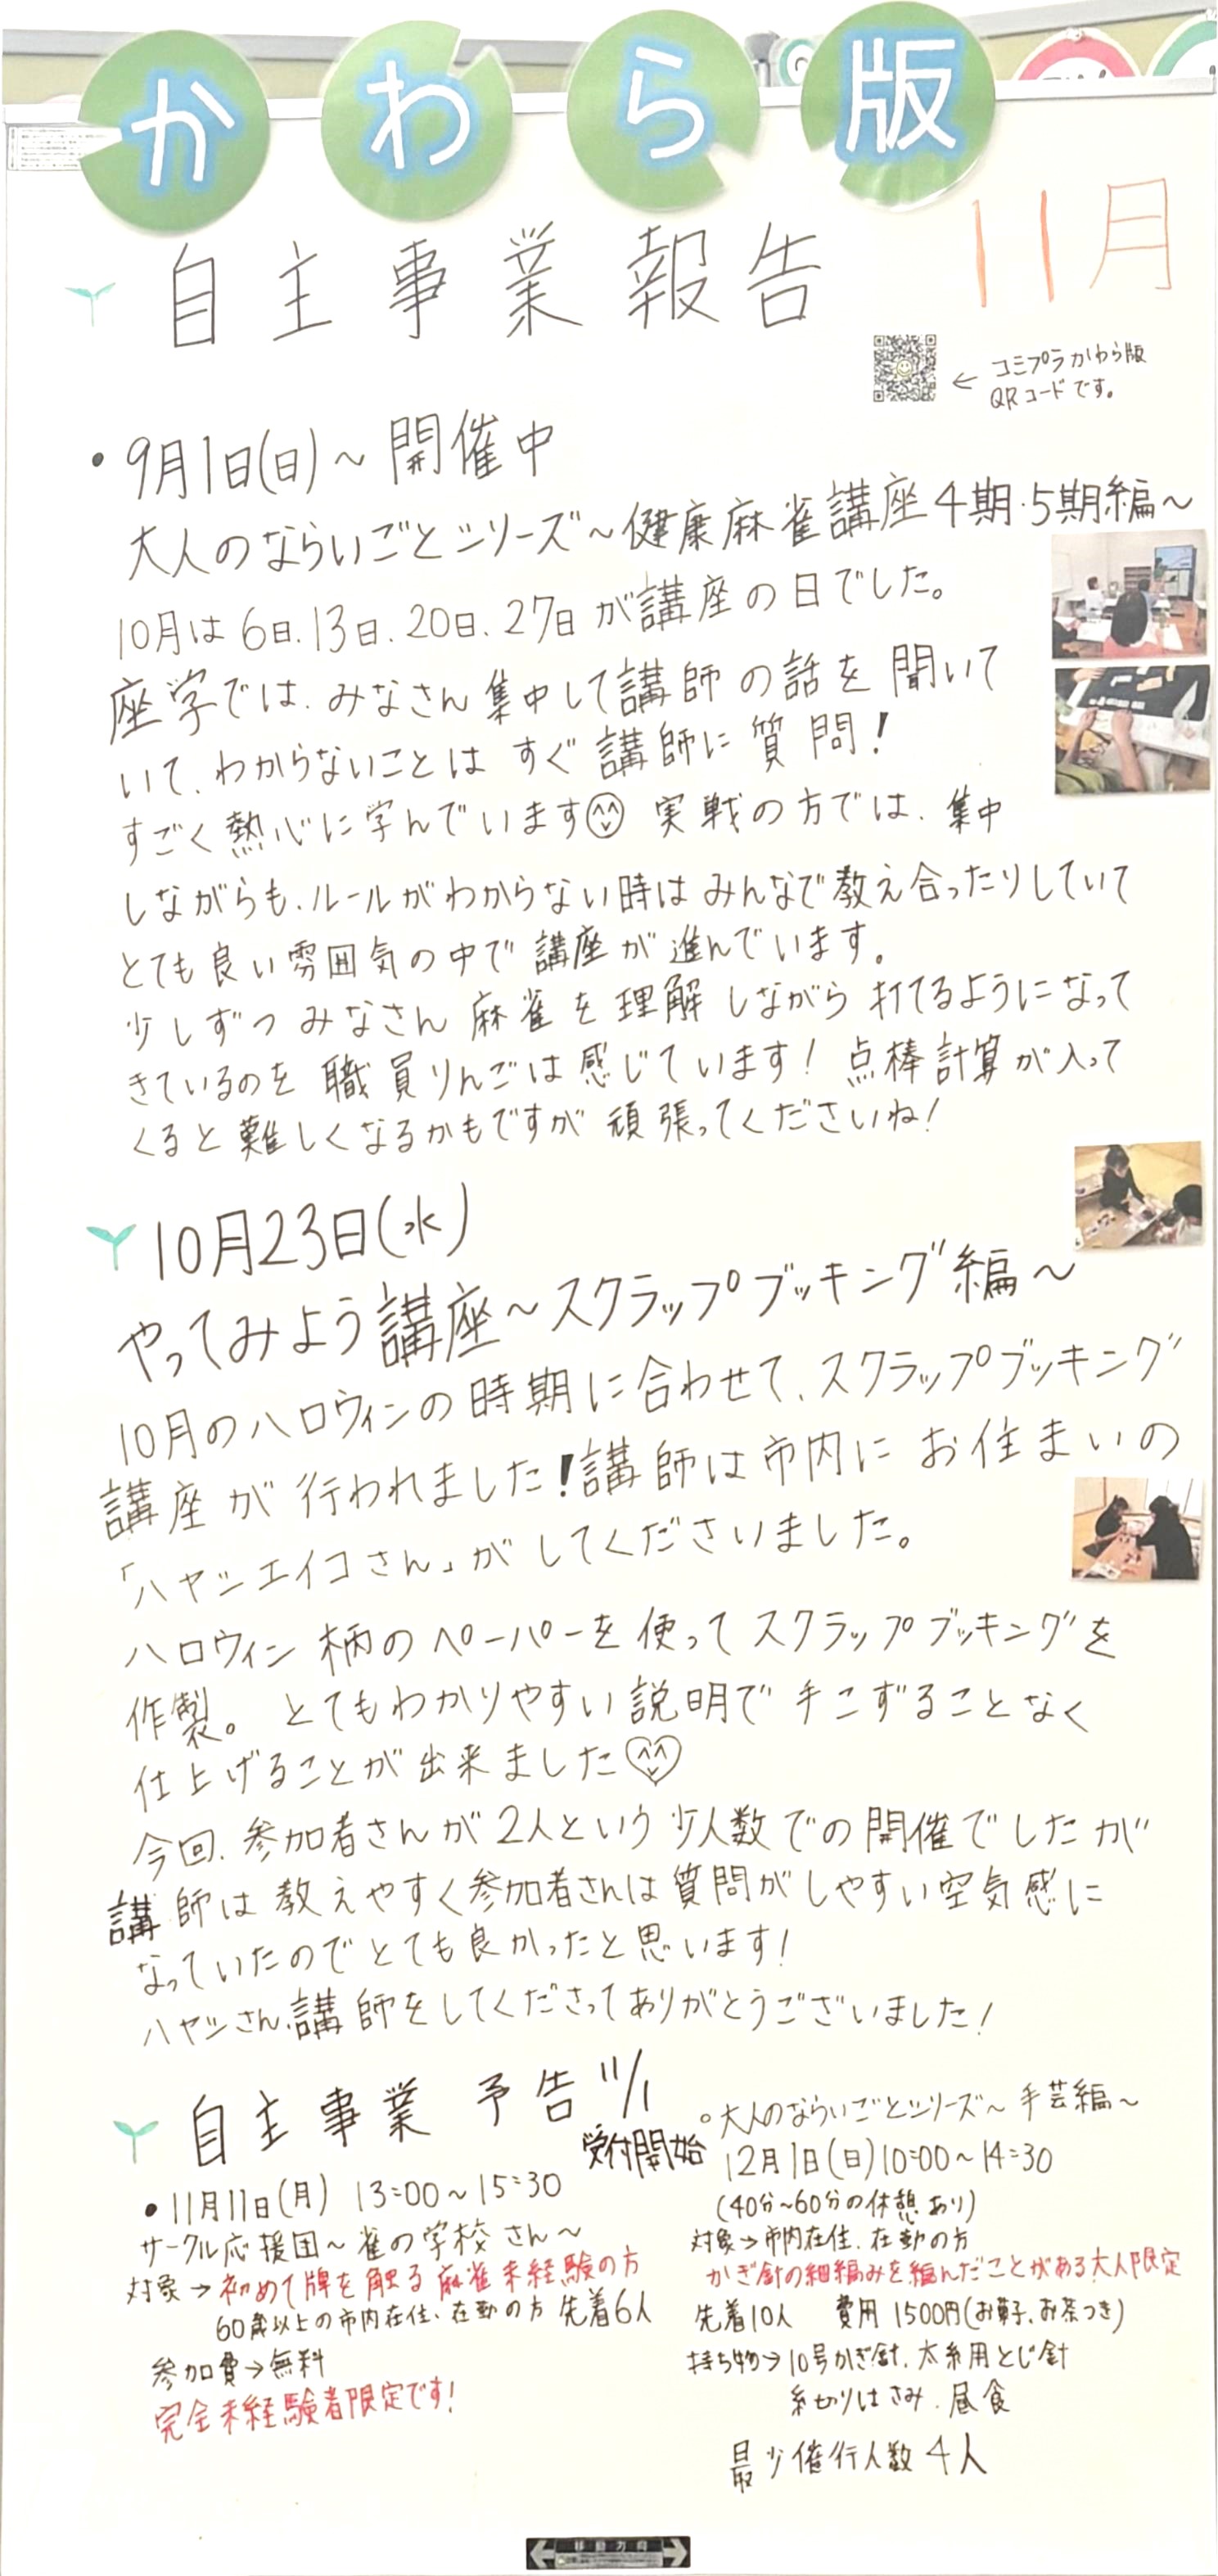 かわら版
11月
自主事業報告
← コミプラかわら版
QRコードです。
・9月1日(日)~開催中
大人のならいごとシリーズ~健康麻雀講座4期・5期編~
10月は6日、13日、20日、27日が講座の日でした。
座学では、みなさん集中して講師の話を聞いて
いて、わからないことはすぐ講師に質問!
すごく熱心に学んでいます 実戦の方では、集中
しながらも、ルールがわからない時はみんなで教え合ったりしていて
とても良い雰囲気の中で講座が進んでいます。
少しずつみなさん麻雀を理解しながら打てるようになって
きているのを職員りんごは感じています!点棒計算が入って
くると難しくなるかもですが頑張ってくださいね!
10月23日(水)
やってみよう講座~スクラップブッキング編~
10月のハロウィンの時期に合わせて、スクラップブッキング
講座が行われました!講師は市内にお住まいの
「ハヤシエイコさん」がしてくださいました。
ハロウィン柄のペーパーを使ってスクラップブッキングを
作製。とてもわかりやすい説明で手こずることなく
仕上げることが出来ました
今回、参加者さんが2人という少人数での開催でしたが
講師は教えやすく参加者さんは質問がしやすい空気感に
なっていたのでとても良かったと思います!
ハヤシさん、講師をしてくださってありがとうございました!
自主事業 予告 11/1
受付開始
・11月11日(月) 13:00~15:30
サークル応援団~雀の学校さん~
対象→初めて牌を触る麻雀未経験の方
60歳以上の市内在住、在勤の方 先着6人
参加費→無料
完全未経験者限定です!
。大人のならいごとシリーズ~手芸編~
12月1日(日)10:00~14:30
(40分~60分の休憩あり)
対象→市内在住、在勤の方
かぎ針の細編みを編んだことがある大人限定
先着10人 費用 1500円(お菓子、お茶つき)
持ち物→10号かぎ針、太糸用とじ針
糸切りはさみ、昼食
最少催行人数4人
移動方向